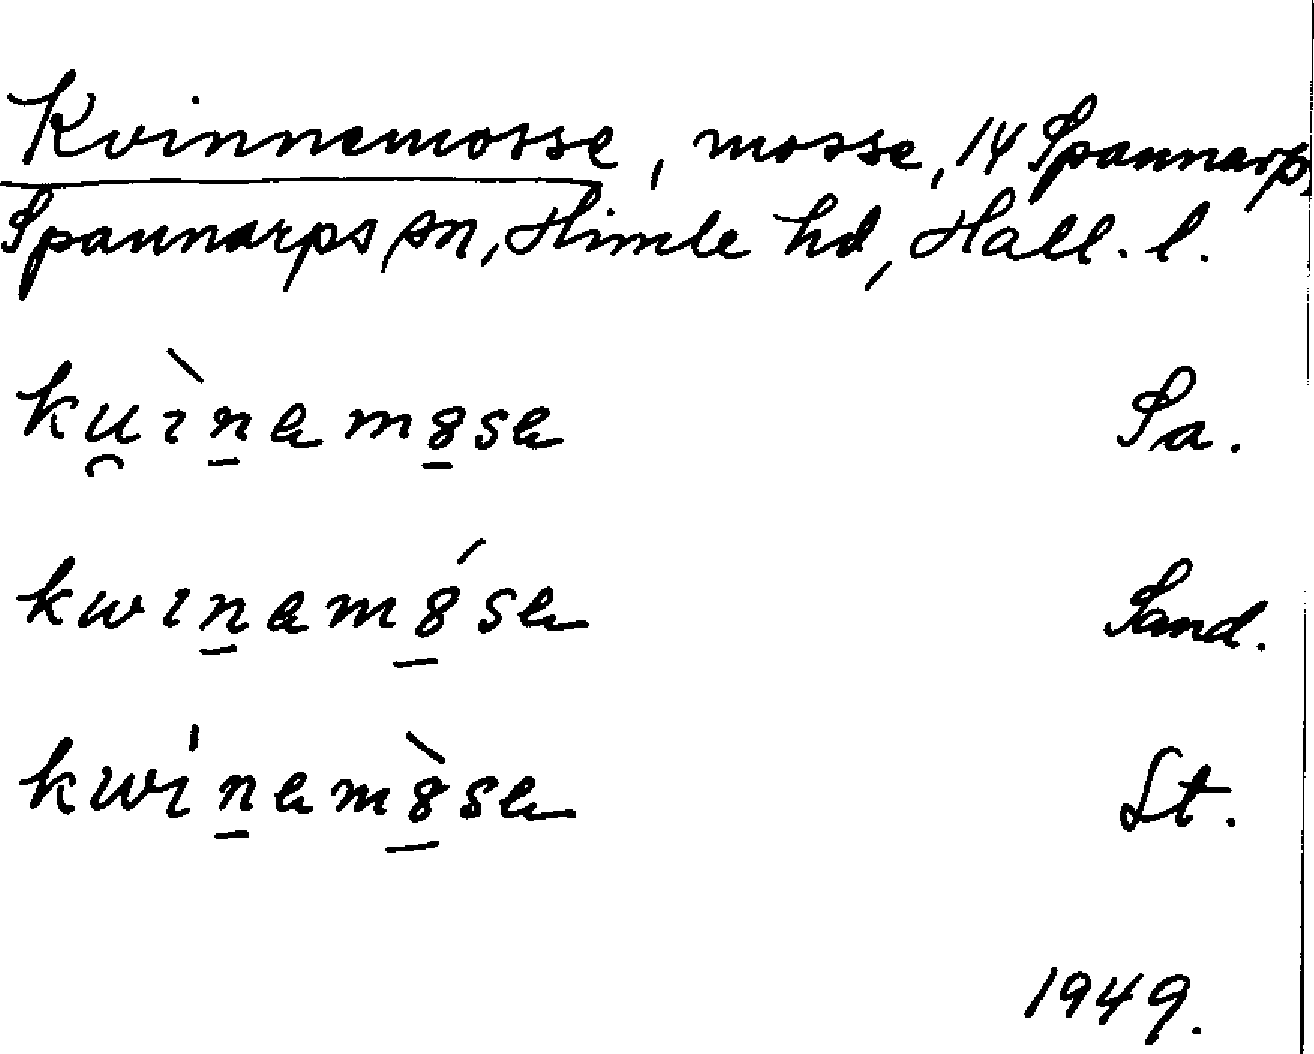 Kvinnemosse, mosse, 14 Spannarp,
Spannarps sn, Himle hd, Hall. l.
ku̯ìn̲am8̲sa Sa.
kwın̲am8̲́sa Sand.
kwın̲am8̲̀sa St.
1949.